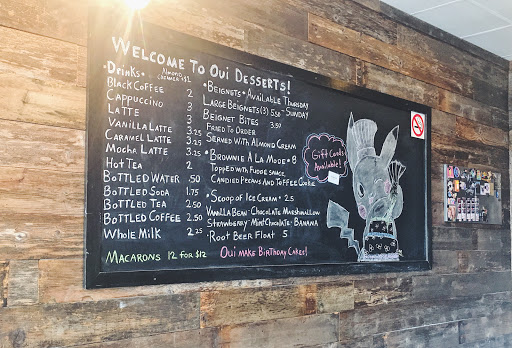 Welcome To Oui Desserts!
•Drinks•
Almond Creamer +$2
Black Coffee 2
Cappuccino 3
Latte 3
Vanilla Latte 3.25
Caramel Latte 3.25
Mocha Latte 3.25
Hot Tea 2
Bottled Water .50
Bottled Soda 1.75
Bottled Tea 2.50
Bottled Coffee 2.50
Whole Milk 2.25
Macarons 12 for $12
•Beignets• Available Thursday
-Sunday
Large Beignets (3) 5.50
Beignet Bites 3.50
Fried To Order
Served With Almond Cream
•Brownie À La Mode• 8
Topped With Fudge Sauce,
Candied Pecans And Toffee Cookie
•Scoop of Ice Cream• 2.5
Vanilla Bean • Chocolate • Marshmallow
Strawberry • Mint Chocolate • Banana
•Root Beer Float 5
Oui make Birthday Cakes!
Gift Cards
Available!